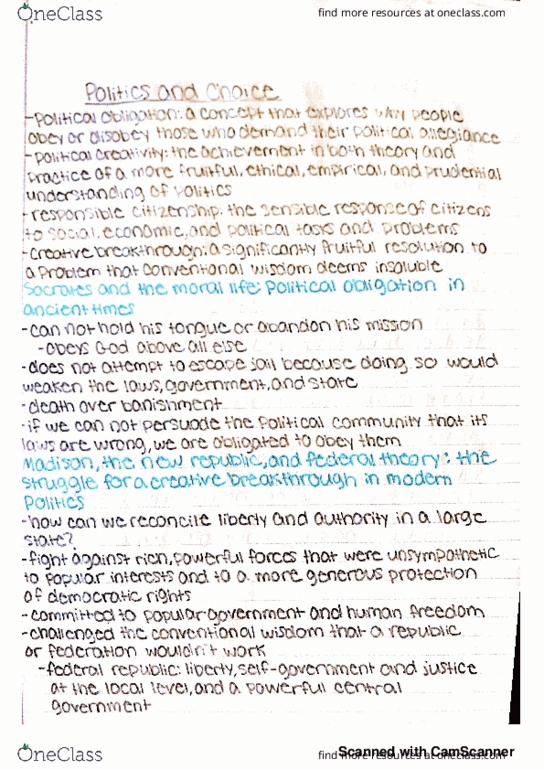 OneClass
find more resources at oneclass.com
Politics and Choice
-Political obligation: a concept that explores why people
obey or disobey those who demand their political allegiance
-political creativity: the achievement in both theory and
practice of a more fruitful, ethical, empirical, and prudential
understanding of politics
-responsible citizenship: the sensible response of citizens
to social, economic, and political tasks and problems
-creative breakthrough: a significantly fruitful resolution to
a problem that conventional wisdom deems insoluble
Socrates and the moral life: Political obligation in
ancient times
-can not hold his tongue or abandon his mission
-obeys God above all else
-does not attempt to escape jail because doing so would
weaken the laws, government, and state
-death over banishment
-if we can not persuade the political community that its
laws are wrong, we are obligated to obey them
Madison, the new republic, and federal theory: the
struggle for a creative breakthrough in modern
Politics
-how can we reconcile liberty and authority in a large
state?
-fight against rich, powerful forces that were unsympathetic
to popular interests and to a more generous protection
of democratic rights
-committed to popular government and human freedom
-challenged the conventional wisdom that a republic
or federation wouldn't work
-federal republic: liberty, self-government and justice
at the local level, and a powerful central
government
OneClass
find more resources at oneclass.com
Scanned with CamScanner